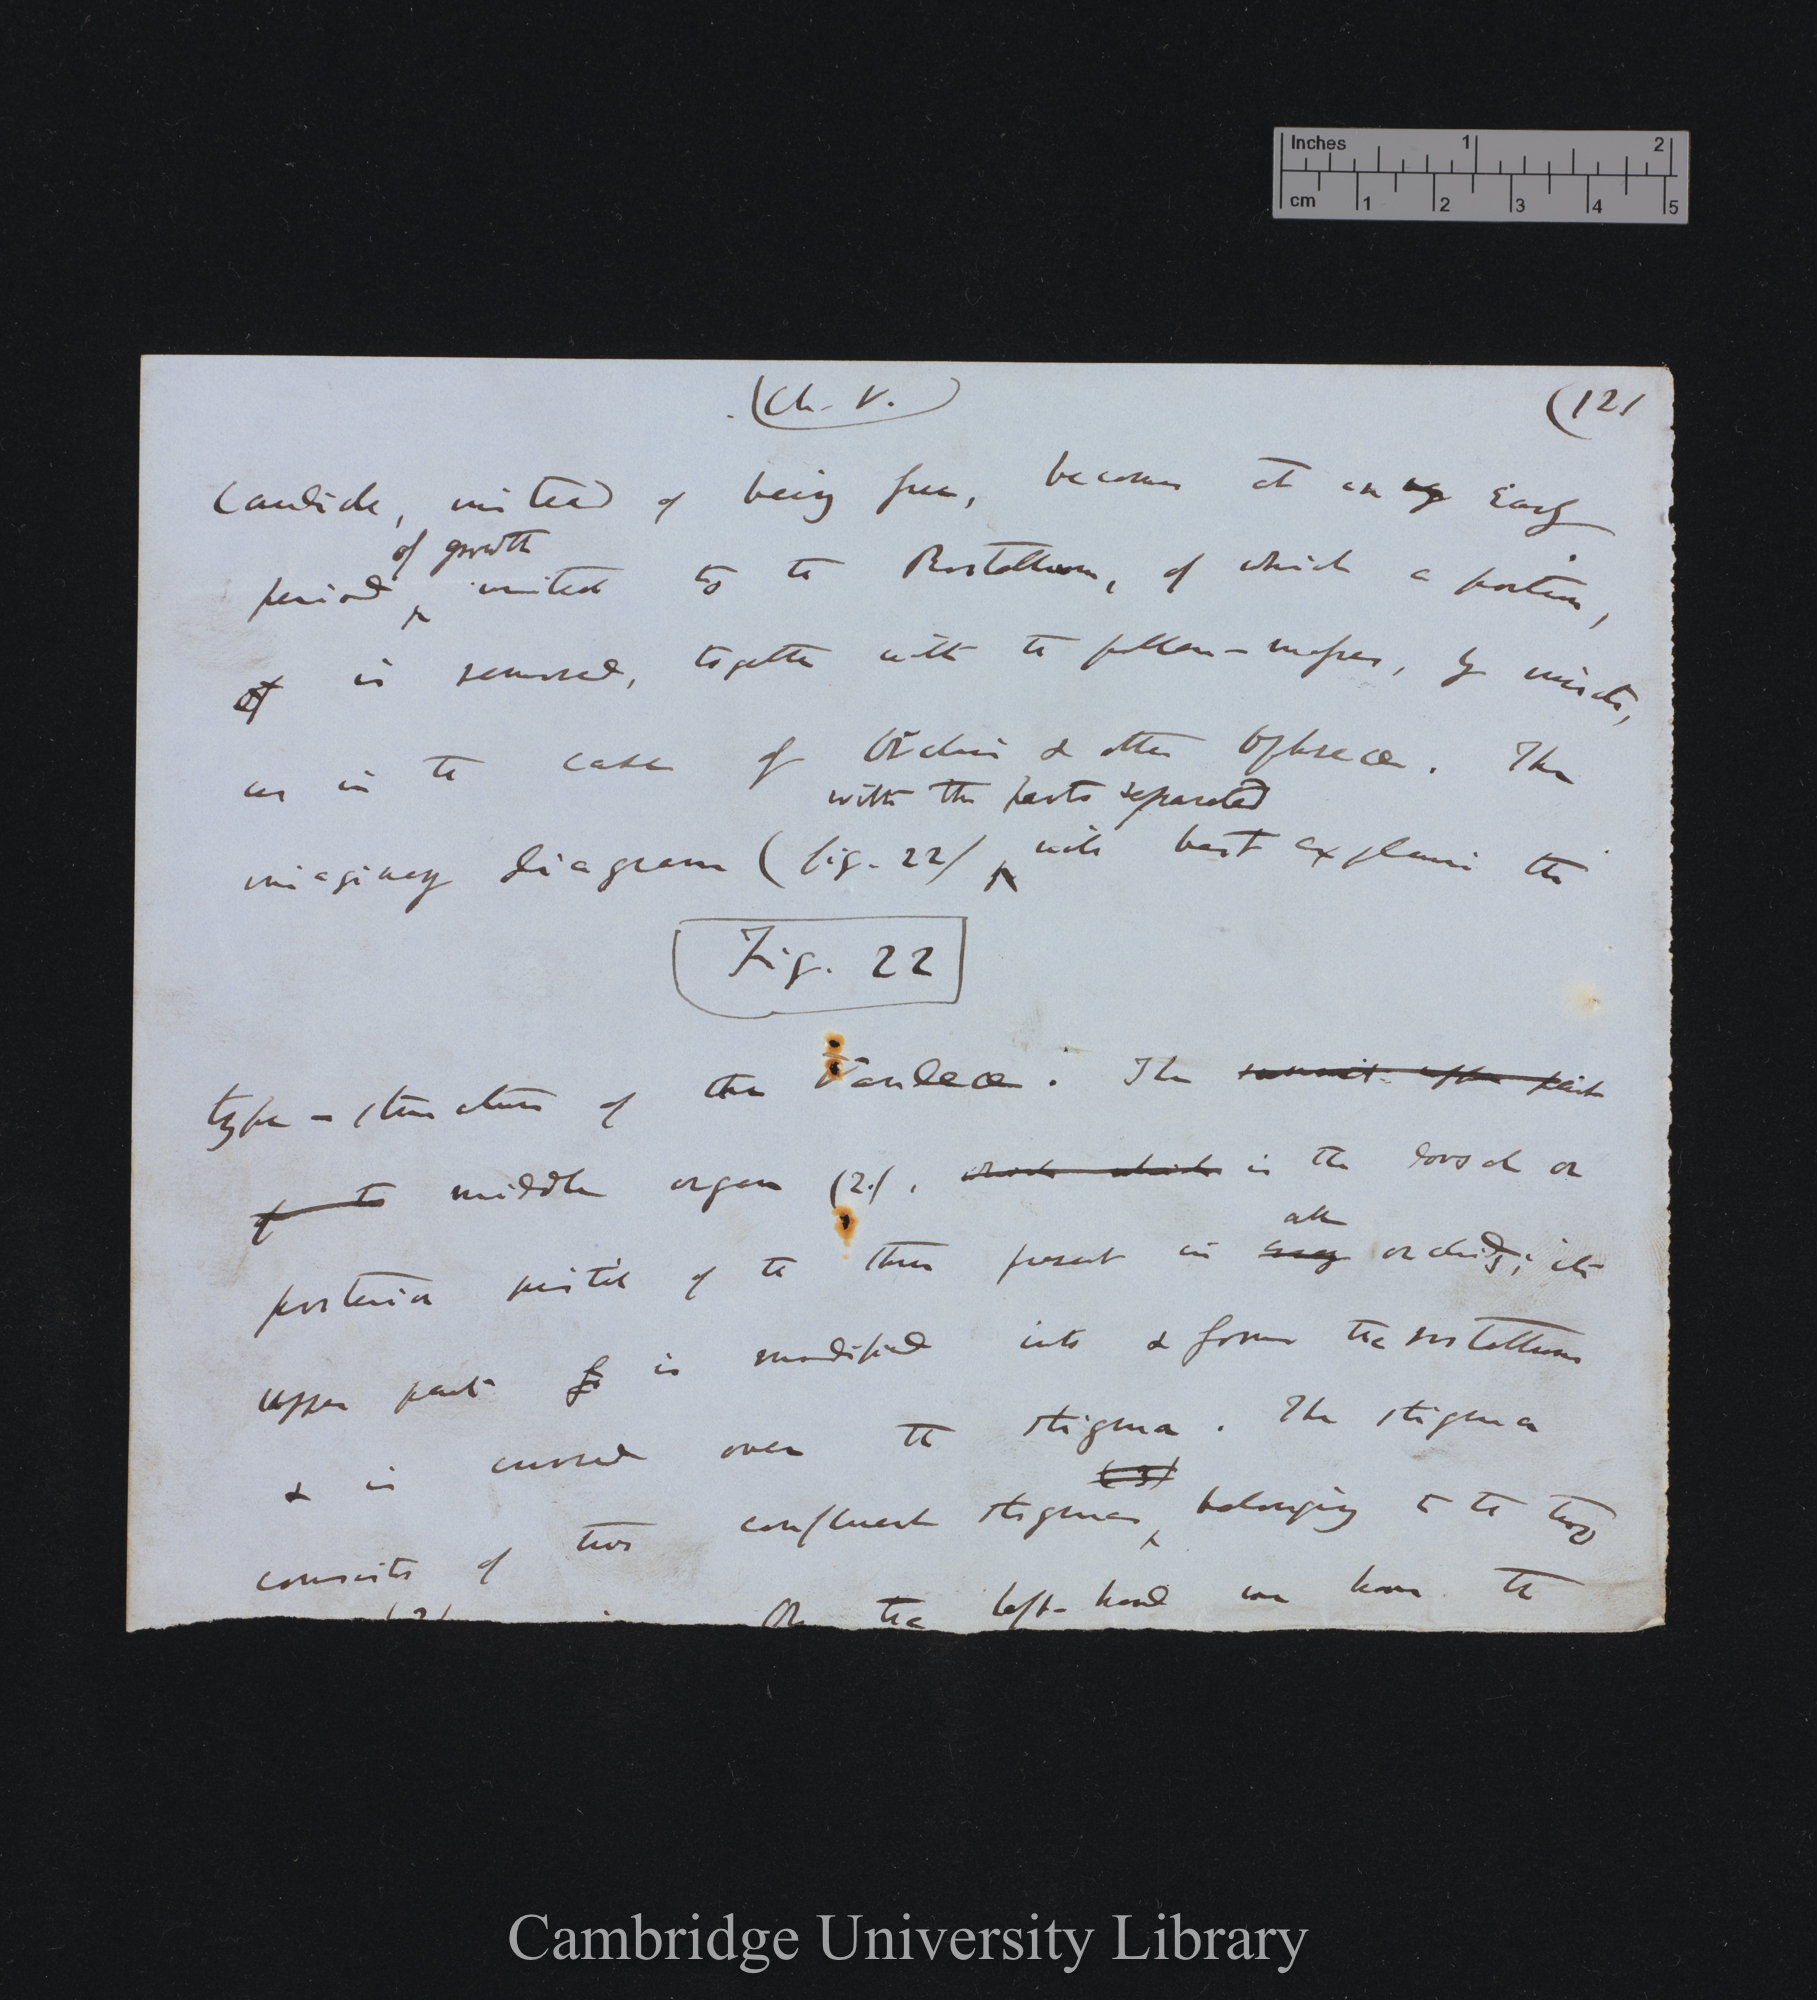 Inches 1 2
cm 1 2 3 4 5
(Ch. V.)
(12)
Caudicle, instead of being free, becomes at an early
of growth
period, united to the Rostellum, of which a portion,
is removed, together with the pollen-masses, by insects,
as in the case of Orchis & other Ophreæ. The
with the parts separated
imaginary diagram (fig. 22) will best explain the
Fig. 22
type-structure of the Vandeæ. The summit upper part
of the middle organ (2), which which is the dorsal or
all
posterior pistil of the three present in any orchids; its
upper part is modified into & forms the rostellum
& is curved over the stigma. The stigma
(3)
consists of two confluent stigmas belonging to the two
On the left-hand we have the
Cambridge University Library